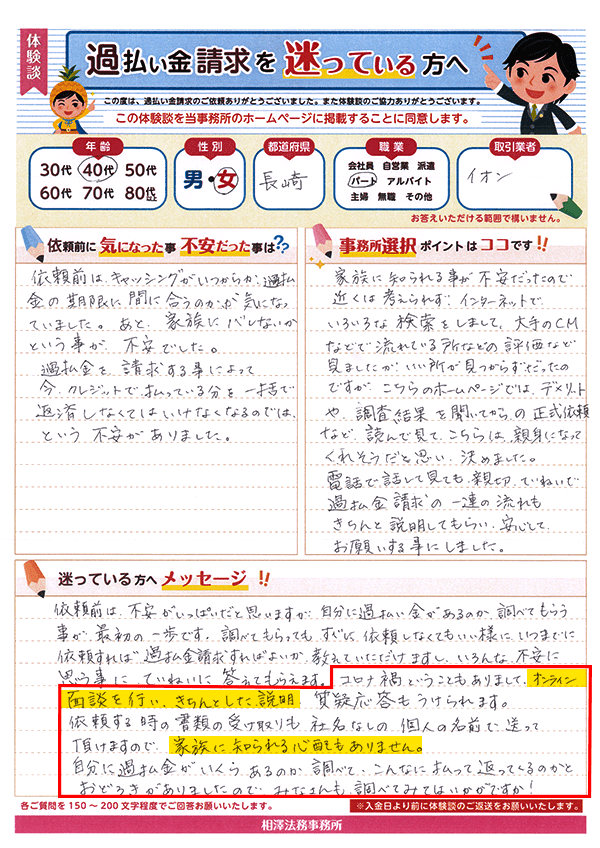 体験談
過払い金請求を迷っている方へ
この度は、過払い金請求のご依頼ありがとうございました。また体験談のご協力ありがとうございます。
この体験談を当事務所のホームページに掲載することに同意します。
年齢
30代 40代 50代
60代 70代 80代以上
性別
男・女
都道府県
長崎
職業
会社員 自営業 派遣
パート アルバイト
主婦 無職 その他
取引業者
イオン
お答えいただける範囲で構いません。
依頼前に気になった事 不安だった事は??
依頼前は、キャッシングがいつからか、過払
金の期限に間に合うのかが気になっ
ていました。あと、家族にバレないか
という事が、不安でした。
過払金を、請求する事によって
今、クレジットで払っている分を一括で
返済しなくてはいけなくなるのでは、
という不安がありました。
事務所選択ポイントはココです!!
家族に知られる事が不安だったので
近くは考えられず、インターネットで、
いろいろな検索をしまして、大手のCM
などで流れている所などの評価など
見ましたが、いい所が見つからずだったの
ですが、こちらのホームページでは、デメリット
や、調査結果を聞いてからの正式依頼
など、読んで見て、こちらは、親身になって
くれそうだと思い、決めました。
電話で話して見ても、親切、ていねいで
過払金請求の一連の流れも
きちんと説明してもらい、安心して、
お願いする事にしました。
迷っている方へメッセージ!!
依頼前は、不安がいっぱいだと思いますが、自分に過払い金があるのか、調べてもらう
事が、最初の一歩です。調べてもらっても、すぐに、依頼しなくてもいい様に、いつまでに
依頼すれば過払金請求すればよいか、教えていただけますし、いろんな、不安に
思う事に、ていねいに答えてもらえます。コロナ禍ということもありまして、オンライン
面談を行い、きちんとした説明、質疑応答もうけられます。
依頼する時の書類の受け取りも、社名なしの、個人の名前で送って
頂けますので、家族に知られる心配もありません。
自分に過払金がいくら、あるのか、調べて、こんなに払って返ってくるのかと
おどろきがありましたので、みなさんも、調べてみてはいかがですか!
各ご質問を150~200文字程度でご回答お願いいたします。
※入会日より前に体験談のご返送をお願いいたします。
相澤法務事務所